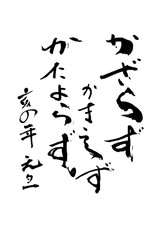 かざらず
かまえず
かたよらず
亥の年 元旦